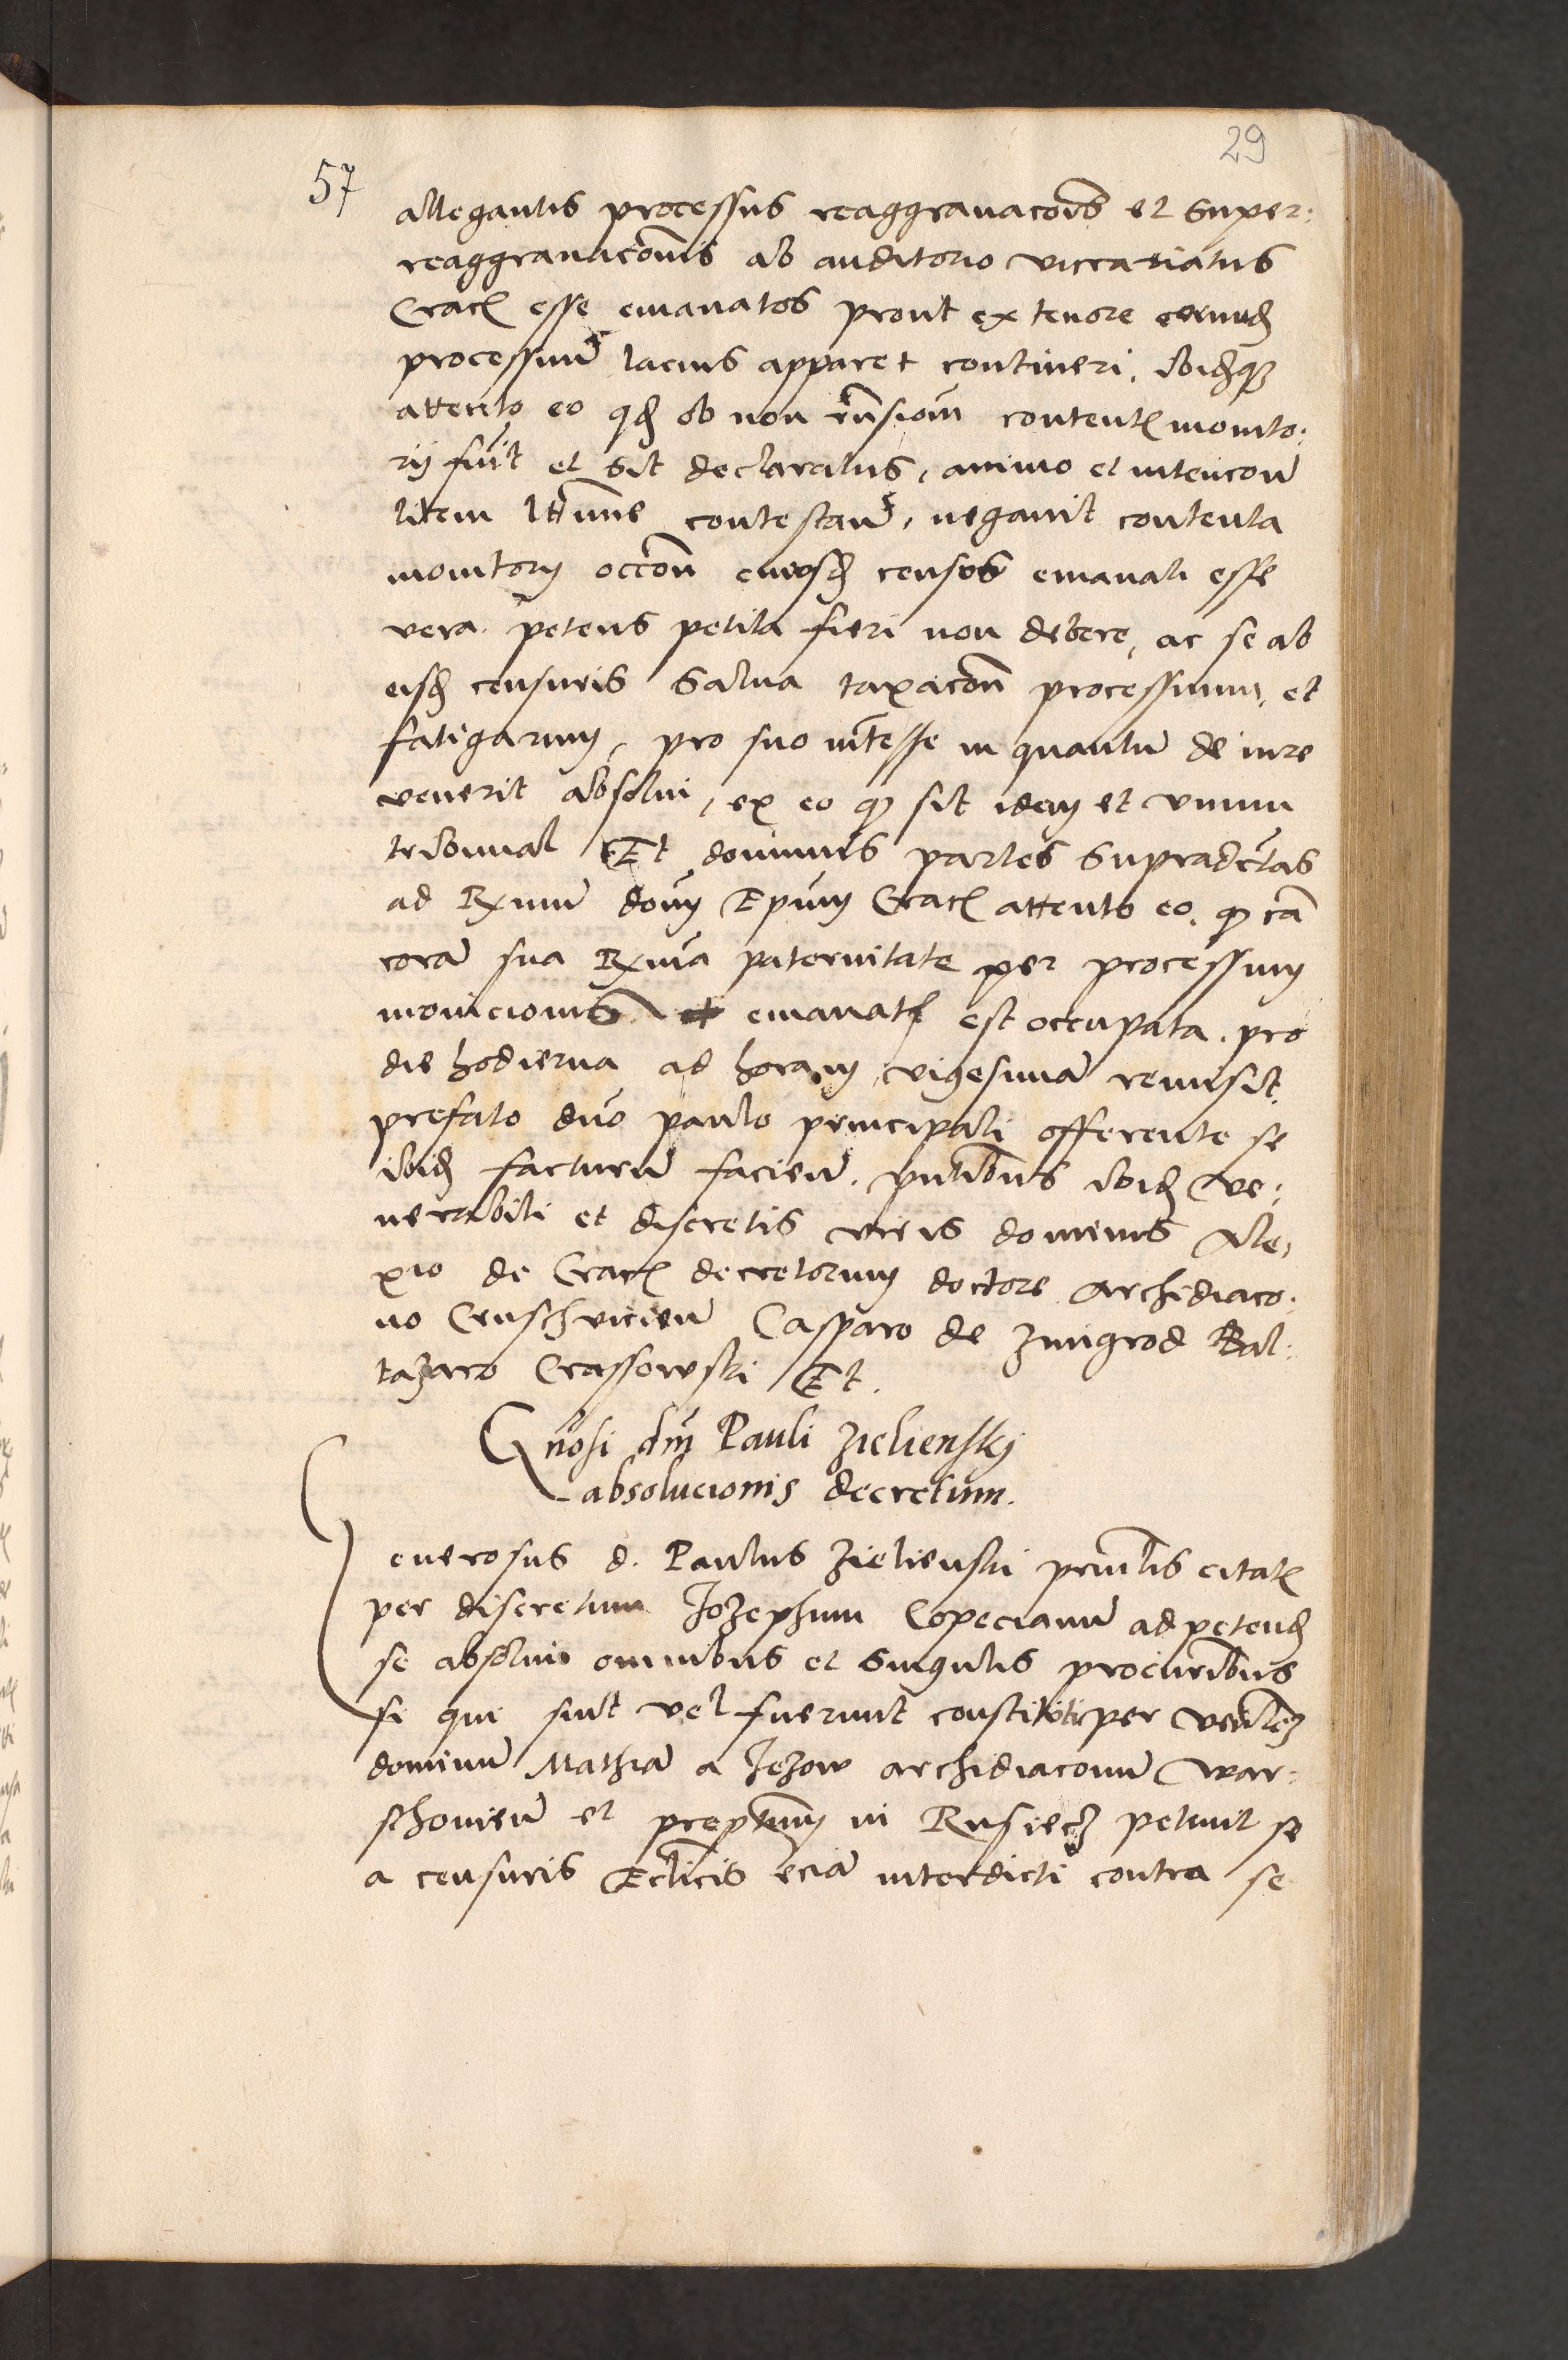 29
57
allegantis processus reaggravacōis et super:
reaggravacōnis ab auditorio vicariatus
Crac̄ esse emanatos prout ex tenore eorund̄
processuū lacius apparet contineri, ibid̄qꝫ
attento eo qd̄ ob non content̄ monito:
rij fuīt et sit declaratus, animo et intencōn
litem contestan̄, negavit contenta
monitorij occōn census emanati esse
vera petens petita fieri non debere, ac se ab
eisd̄ censuris salva taxacōn processuum, et
fatigarum, pro suo int̄esse in quantū de iure
venerit absolvi, ex eo qꝫ sit idem et unum
tribunal Et dominus partes supradc̄tas
ad Rx̄mum dōnum Ep̄um Crac̄ attento eo, qꝫ cā
corā sua Rx̄ma paternitate per processum
monicionis emanat̄ est occupata, pro
die hodierna ad horam vigesimā remisit,
prefato dn̄o paulo principali offerente se
ibid̄ facturū facien̄, pn̄tibus ibid̄ ve:
nerabili et discretis viris dominis Ale,
xio de Crac̄ decretorum doctore Archidiaco:
no Cruschvicien̄ Casparo de Zmigrod Bal:
tazaro Crassowski Et.
Gn̄osi dn̄i Pauli Zielienskj
absolucionis decretum.
Generosus d. Paulus Zielienski prin̄lis citat̄
per discretum Jozephum Copecianū ad petend̄
se absolvi omnibus et singulis procuribus
si qui sint vel fuerunt constituti per ven̄lem
dominū Mathiā a Jezow archidiaconū War:
schovien̄ et prep̄tum in Rusiecz petivit se
a censuris Ec̄licis eciā interdicti contra se